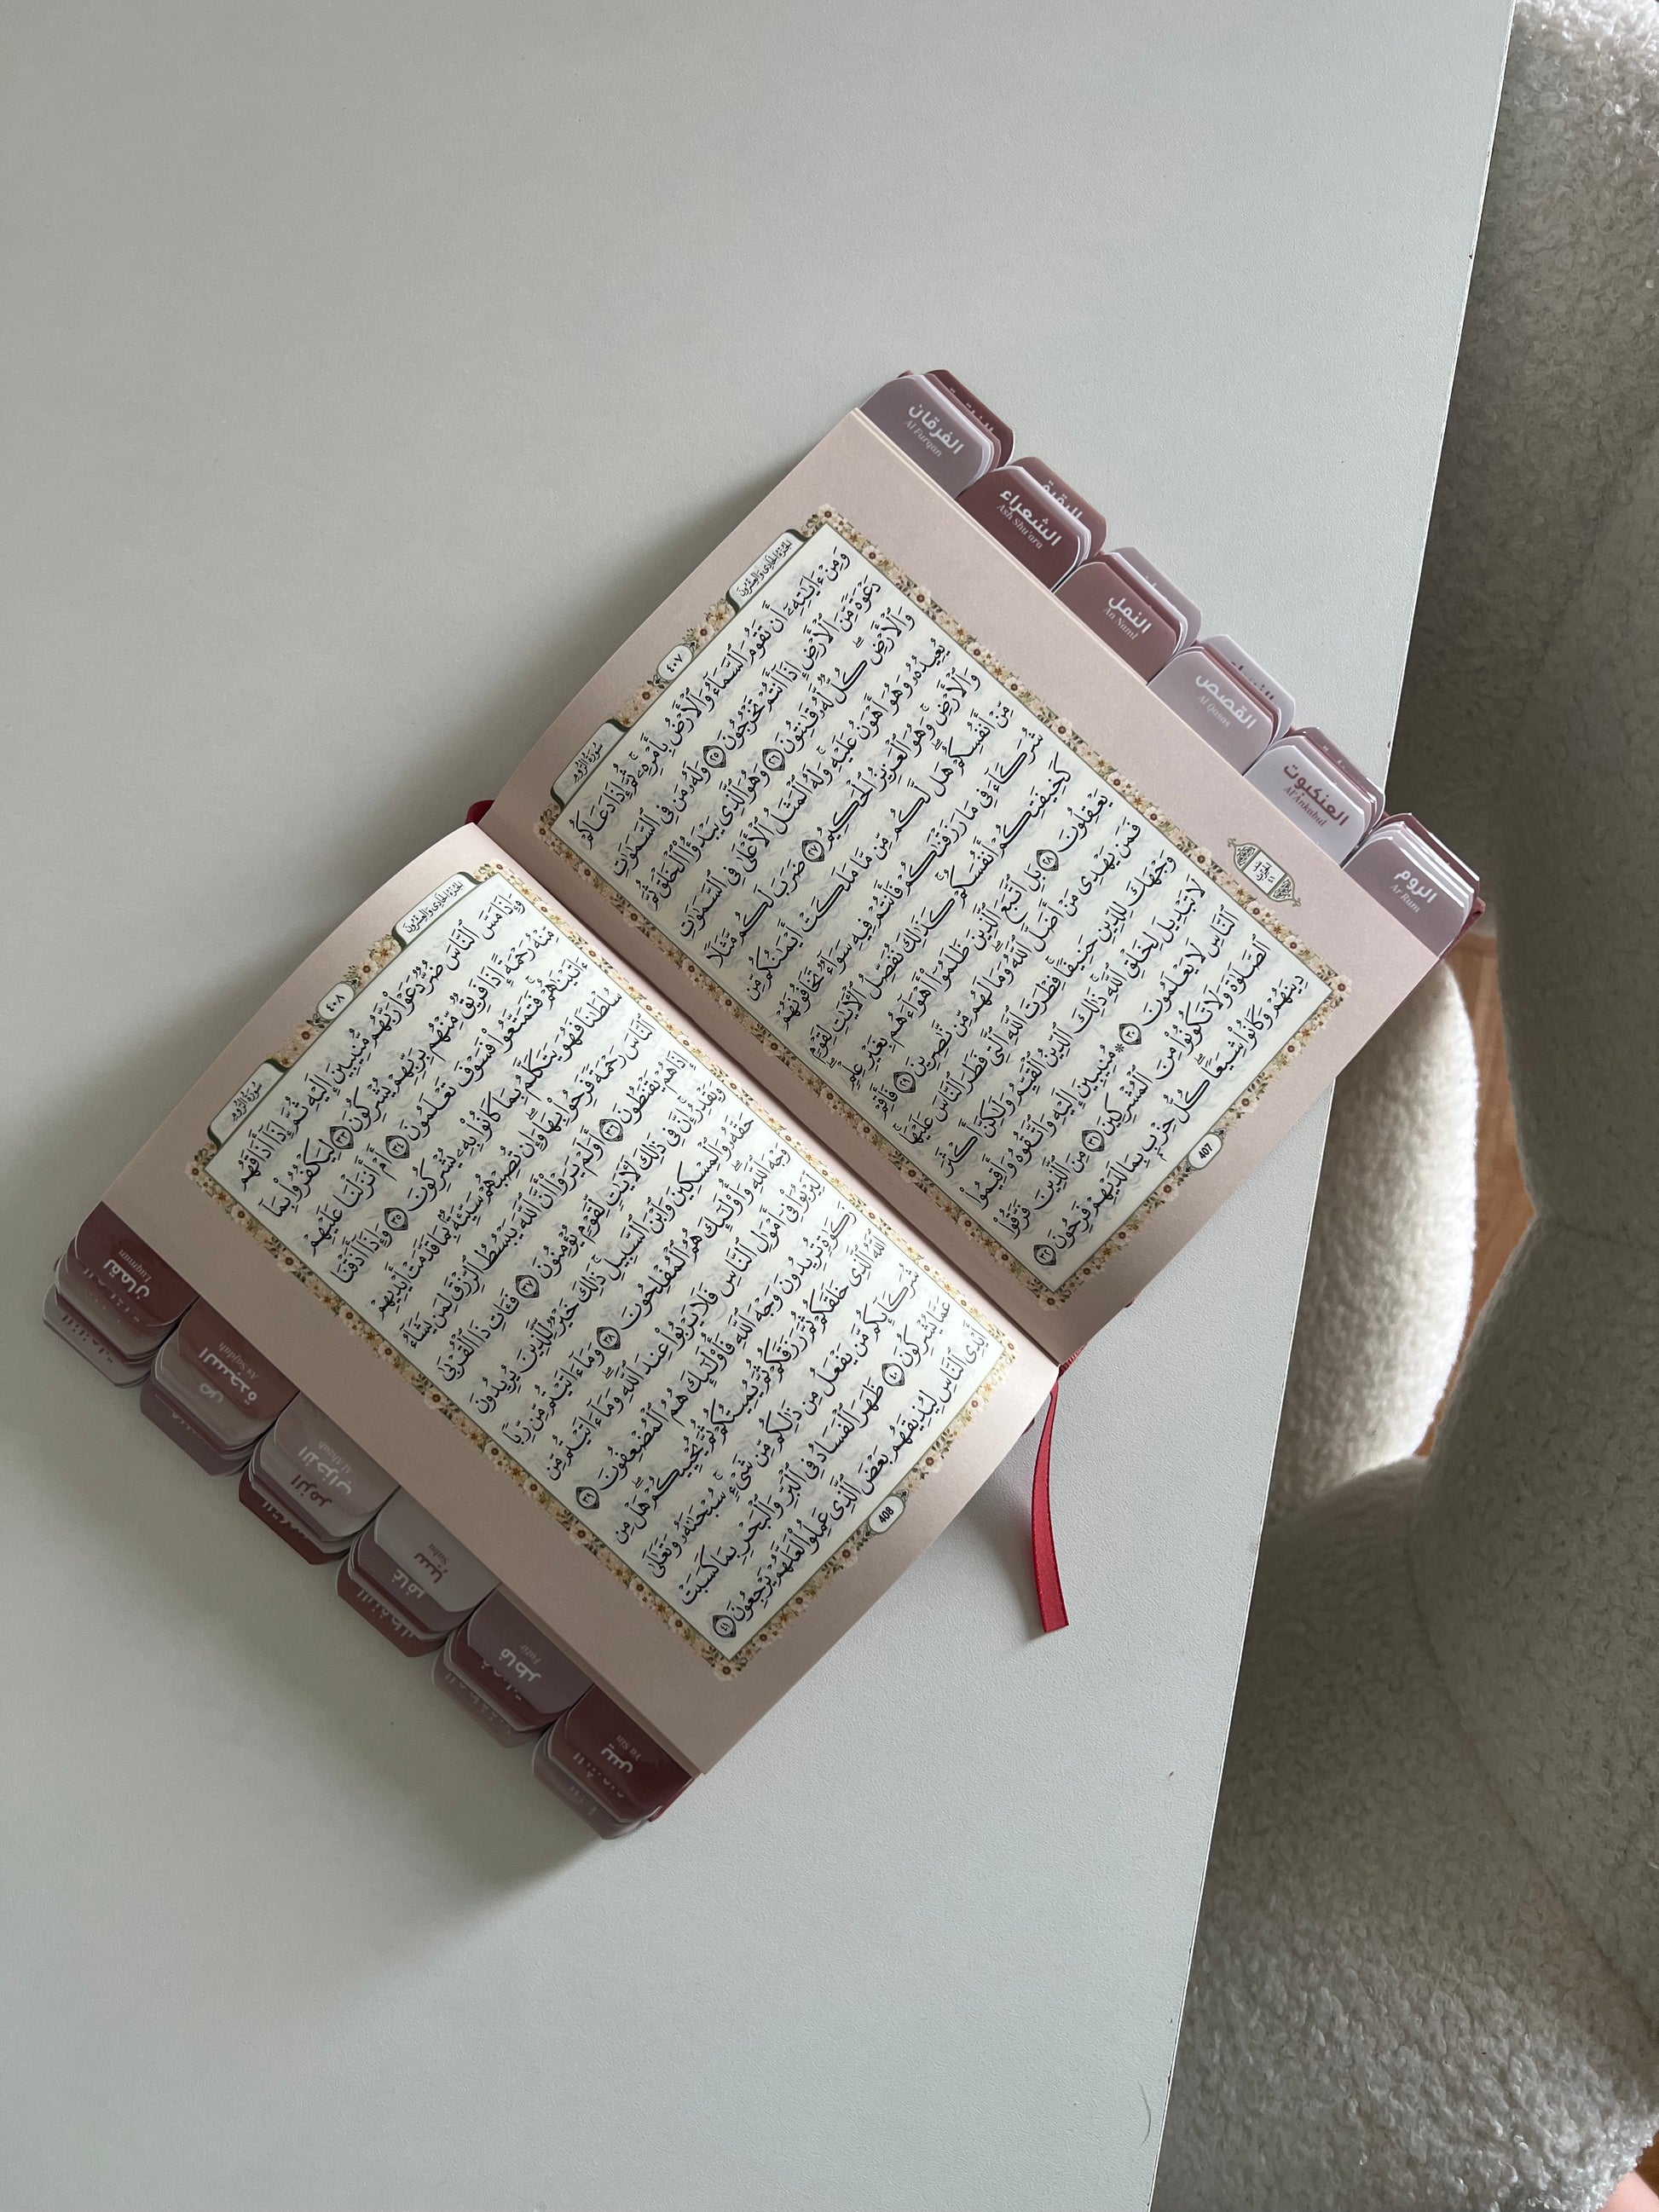 الجزء الحادي والعشرون
٤٠٧
سورة الروم
وَمِنْ ءَايَٰتِهِۦٓ أَن تَقُومَ ٱلسَّمَآءُ وَٱلْأَرْضُ بِأَمْرِهِۦۚ ثُمَّ إِذَا دَعَاكُمْ
دَعْوَةً مِّنَ ٱلْأَرْضِ إِذَآ أَنتُمْ تَخْرُجُونَ ٢٥ وَلَهُۥ مَن فِى ٱلسَّمَٰوَٰتِ
وَٱلْأَرْضِۖ كُلٌّ لَّهُۥ قَٰنِتُونَ ٢٦ وَهُوَ ٱلَّذِى يَبْدَؤُا۟ ٱلْخَلْقَ ثُمَّ
يُعِيدُهُۥ وَهُوَ أَهْوَنُ عَلَيْهِۚ وَلَهُ ٱلْمَثَلُ ٱلْأَعْلَىٰ فِى ٱلسَّمَٰوَٰتِ
وَٱلْأَرْضِۚ وَهُوَ ٱلْعَزِيزُ ٱلْحَكِيمُ ٢٧ ضَرَبَ لَكُم مَّثَلًا
مِّنْ أَنفُسِكُمْۖ هَل لَّكُم مِّن مَّا مَلَكَتْ أَيْمَٰنُكُم مِّن
شُرَكَآءَ فِى مَا رَزَقْنَٰكُمْ فَأَنتُمْ فِيهِ سَوَآءٌ تَخَافُونَهُمْ
كَخِيفَتِكُمْ أَنفُسَكُمْۚ كَذَٰلِكَ نُفَصِّلُ ٱلْءَايَٰتِ لِقَوْمٍ
يَعْقِلُونَ ٢٨ بَلِ ٱتَّبَعَ ٱلَّذِينَ ظَلَمُوٓا۟ أَهْوَآءَهُم بِغَيْرِ عِلْمٍۖ
فَمَن يَهْدِى مَنْ أَضَلَّ ٱللَّهُۖ وَمَا لَهُم مِّن نَّٰصِرِينَ ٢٩ فَأَقِمْ
وَجْهَكَ لِلدِّينِ حَنِيفًاۚ فِطْرَتَ ٱللَّهِ ٱلَّتِى فَطَرَ ٱلنَّاسَ عَلَيْهَاۚ
لَا تَبْدِيلَ لِخَلْقِ ٱللَّهِۚ ذَٰلِكَ ٱلدِّينُ ٱلْقَيِّمُ وَلَٰكِنَّ أَكْثَرَ
ٱلنَّاسِ لَا يَعْلَمُونَ ٣٠ * مُنِيبِينَ إِلَيْهِ وَٱتَّقُوهُ وَأَقِيمُوا۟
ٱلصَّلَوٰةَ وَلَا تَكُونُوا۟ مِنَ ٱلْمُشْرِكِينَ ٣١ مِنَ ٱلَّذِينَ فَرَّقُوا۟
دِينَهُمْ وَكَانُوا۟ شِيَعًاۖ كُلُّ حِزْبٍۭ بِمَا لَدَيْهِمْ فَرِحُونَ ٣٢
407
الجزء الحادي والعشرون
٤٠٨
سورة الروم
وَإِذَا مَسَّ ٱلنَّاسَ ضُرٌّ دَعَوْا۟ رَبَّهُم مُّنِيبِينَ إِلَيْهِ ثُمَّ إِذَآ أَذَاقَهُم
مِّنْهُ رَحْمَةً إِذَا فَرِيقٌ مِّنْهُم بِرَبِّهِمْ يُشْرِكُونَ ٣٣ لِيَكْفُرُوا۟ بِمَآ
ءَاتَيْنَٰهُمْۚ فَتَمَتَّعُوا۟ فَسَوْفَ تَعْلَمُونَ ٣٤ أَمْ أَنزَلْنَا عَلَيْهِمْ
سُلْطَٰنًا فَهُوَ يَتَكَلَّمُ بِمَا كَانُوا۟ بِهِۦ يُشْرِكُونَ ٣٥ وَإِذَآ أَذَقْنَا
ٱلنَّاسَ رَحْمَةً فَرِحُوا۟ بِهَاۖ وَإِن تُصِبْهُمْ سَيِّئَةٌۢ بِمَا قَدَّمَتْ أَيْدِيهِمْ
إِذَا هُمْ يَقْنَطُونَ ٣٦ أَوَلَمْ يَرَوْا۟ أَنَّ ٱللَّهَ يَبْسُطُ ٱلرِّزْقَ لِمَن يَشَآءُ
وَيَقْدِرُۚ إِنَّ فِى ذَٰلِكَ لَءَايَٰتٍ لِّقَوْمٍ يُؤْمِنُونَ ٣٧ فَـَٔاتِ ذَا ٱلْقُرْبَىٰ
حَقَّهُۥ وَٱلْمِسْكِينَ وَٱبْنَ ٱلسَّبِيلِۚ ذَٰلِكَ خَيْرٌ لِّلَّذِينَ يُرِيدُونَ
وَجْهَ ٱللَّهِۖ وَأُو۟لَٰٓئِكَ هُمُ ٱلْمُفْلِحُونَ ٣٨ وَمَآ ءَاتَيْتُم مِّن رِّبًا
لِّيَرْبُوَا۟ فِىٓ أَمْوَٰلِ ٱلنَّاسِ فَلَا يَرْبُوا۟ عِندَ ٱللَّهِۖ وَمَآ ءَاتَيْتُم مِّن
زَكَوٰةٍ تُرِيدُونَ وَجْهَ ٱللَّهِ فَأُو۟لَٰٓئِكَ هُمُ ٱلْمُضْعِفُونَ ٣٩
ٱللَّهُ ٱلَّذِى خَلَقَكُمْ ثُمَّ رَزَقَكُمْ ثُمَّ يُمِيتُكُمْ ثُمَّ يُحْيِيكُمْۖ هَلْ مِن
شُرَكَآئِكُم مَّن يَفْعَلُ مِن ذَٰلِكُم مِّن شَىْءٍۚ سُبْحَٰنَهُۥ وَتَعَٰلَىٰ
عَمَّا يُشْرِكُونَ ٤٠ ظَهَرَ ٱلْفَسَادُ فِى ٱلْبَرِّ وَٱلْبَحْرِ بِمَا كَسَبَتْ
أَيْدِى ٱلنَّاسِ لِيُذِيقَهُم بَعْضَ ٱلَّذِى عَمِلُوا۟ لَعَلَّهُمْ يَرْجِعُونَ ٤١
408
الفرقان
Al Furqan
الشعراء
Ash Shu'ara
النمل
An Naml
القصص
Al Qasas
العنكبوت
Al Ankabut
الروم
Ar Rum
لقمان
Luqman
السجدة
As Sajdah
الأحزاب
Al Ahzab
سبأ
Saba
فاطر
Fatir
يس
Ya Sin
ص
الزمر
غافر